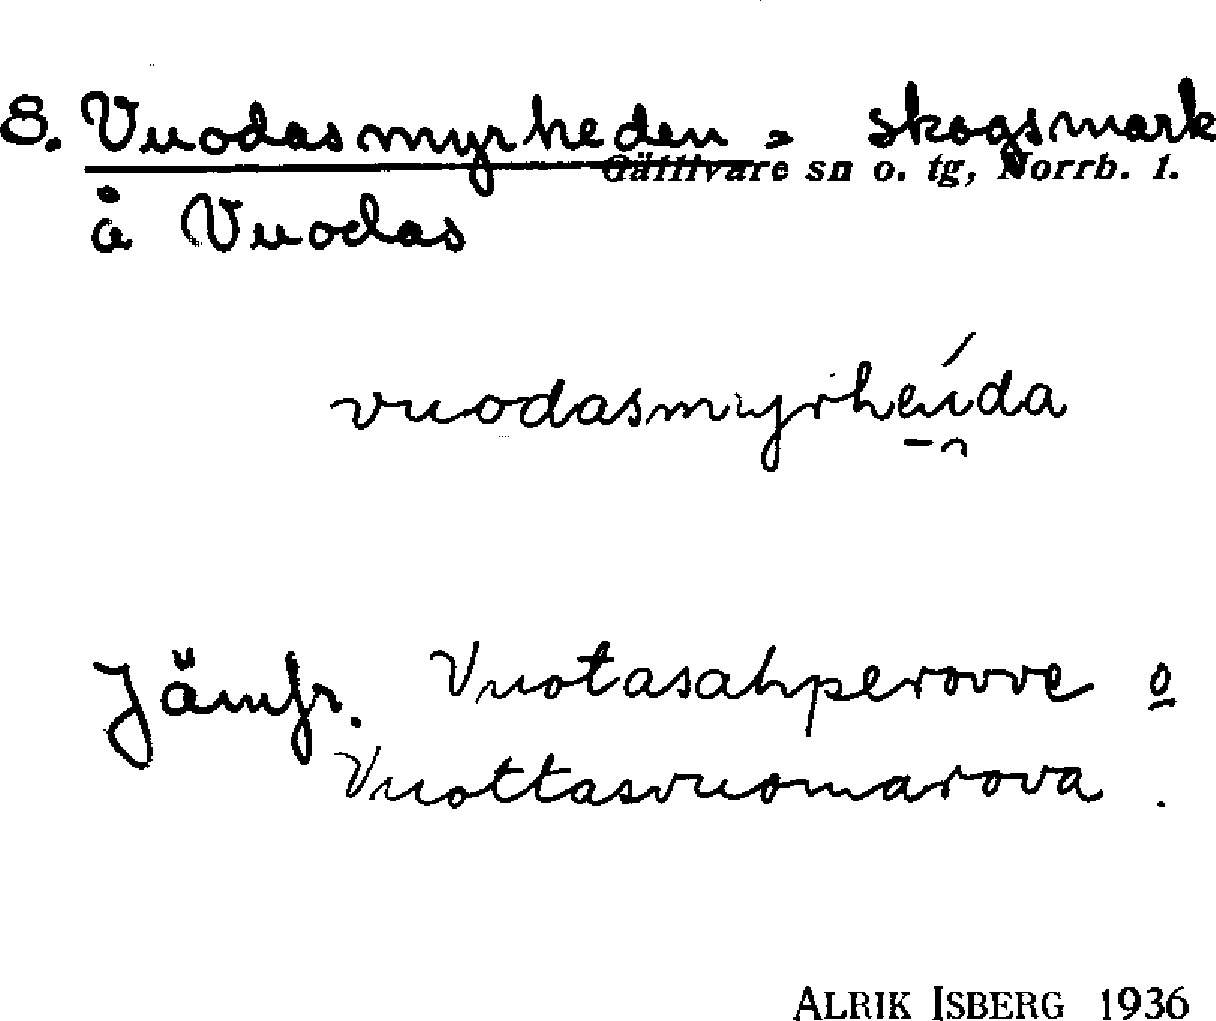 8. Vuodasmyrheden, skogsmark
Gällivare sn o. tg, Norrb. l.
å Vuodas
vuodasmyrhеída
Jämfr. Vuotasahperovve o
Vuottasvuomarova.
ALRIK ISBERG 1936